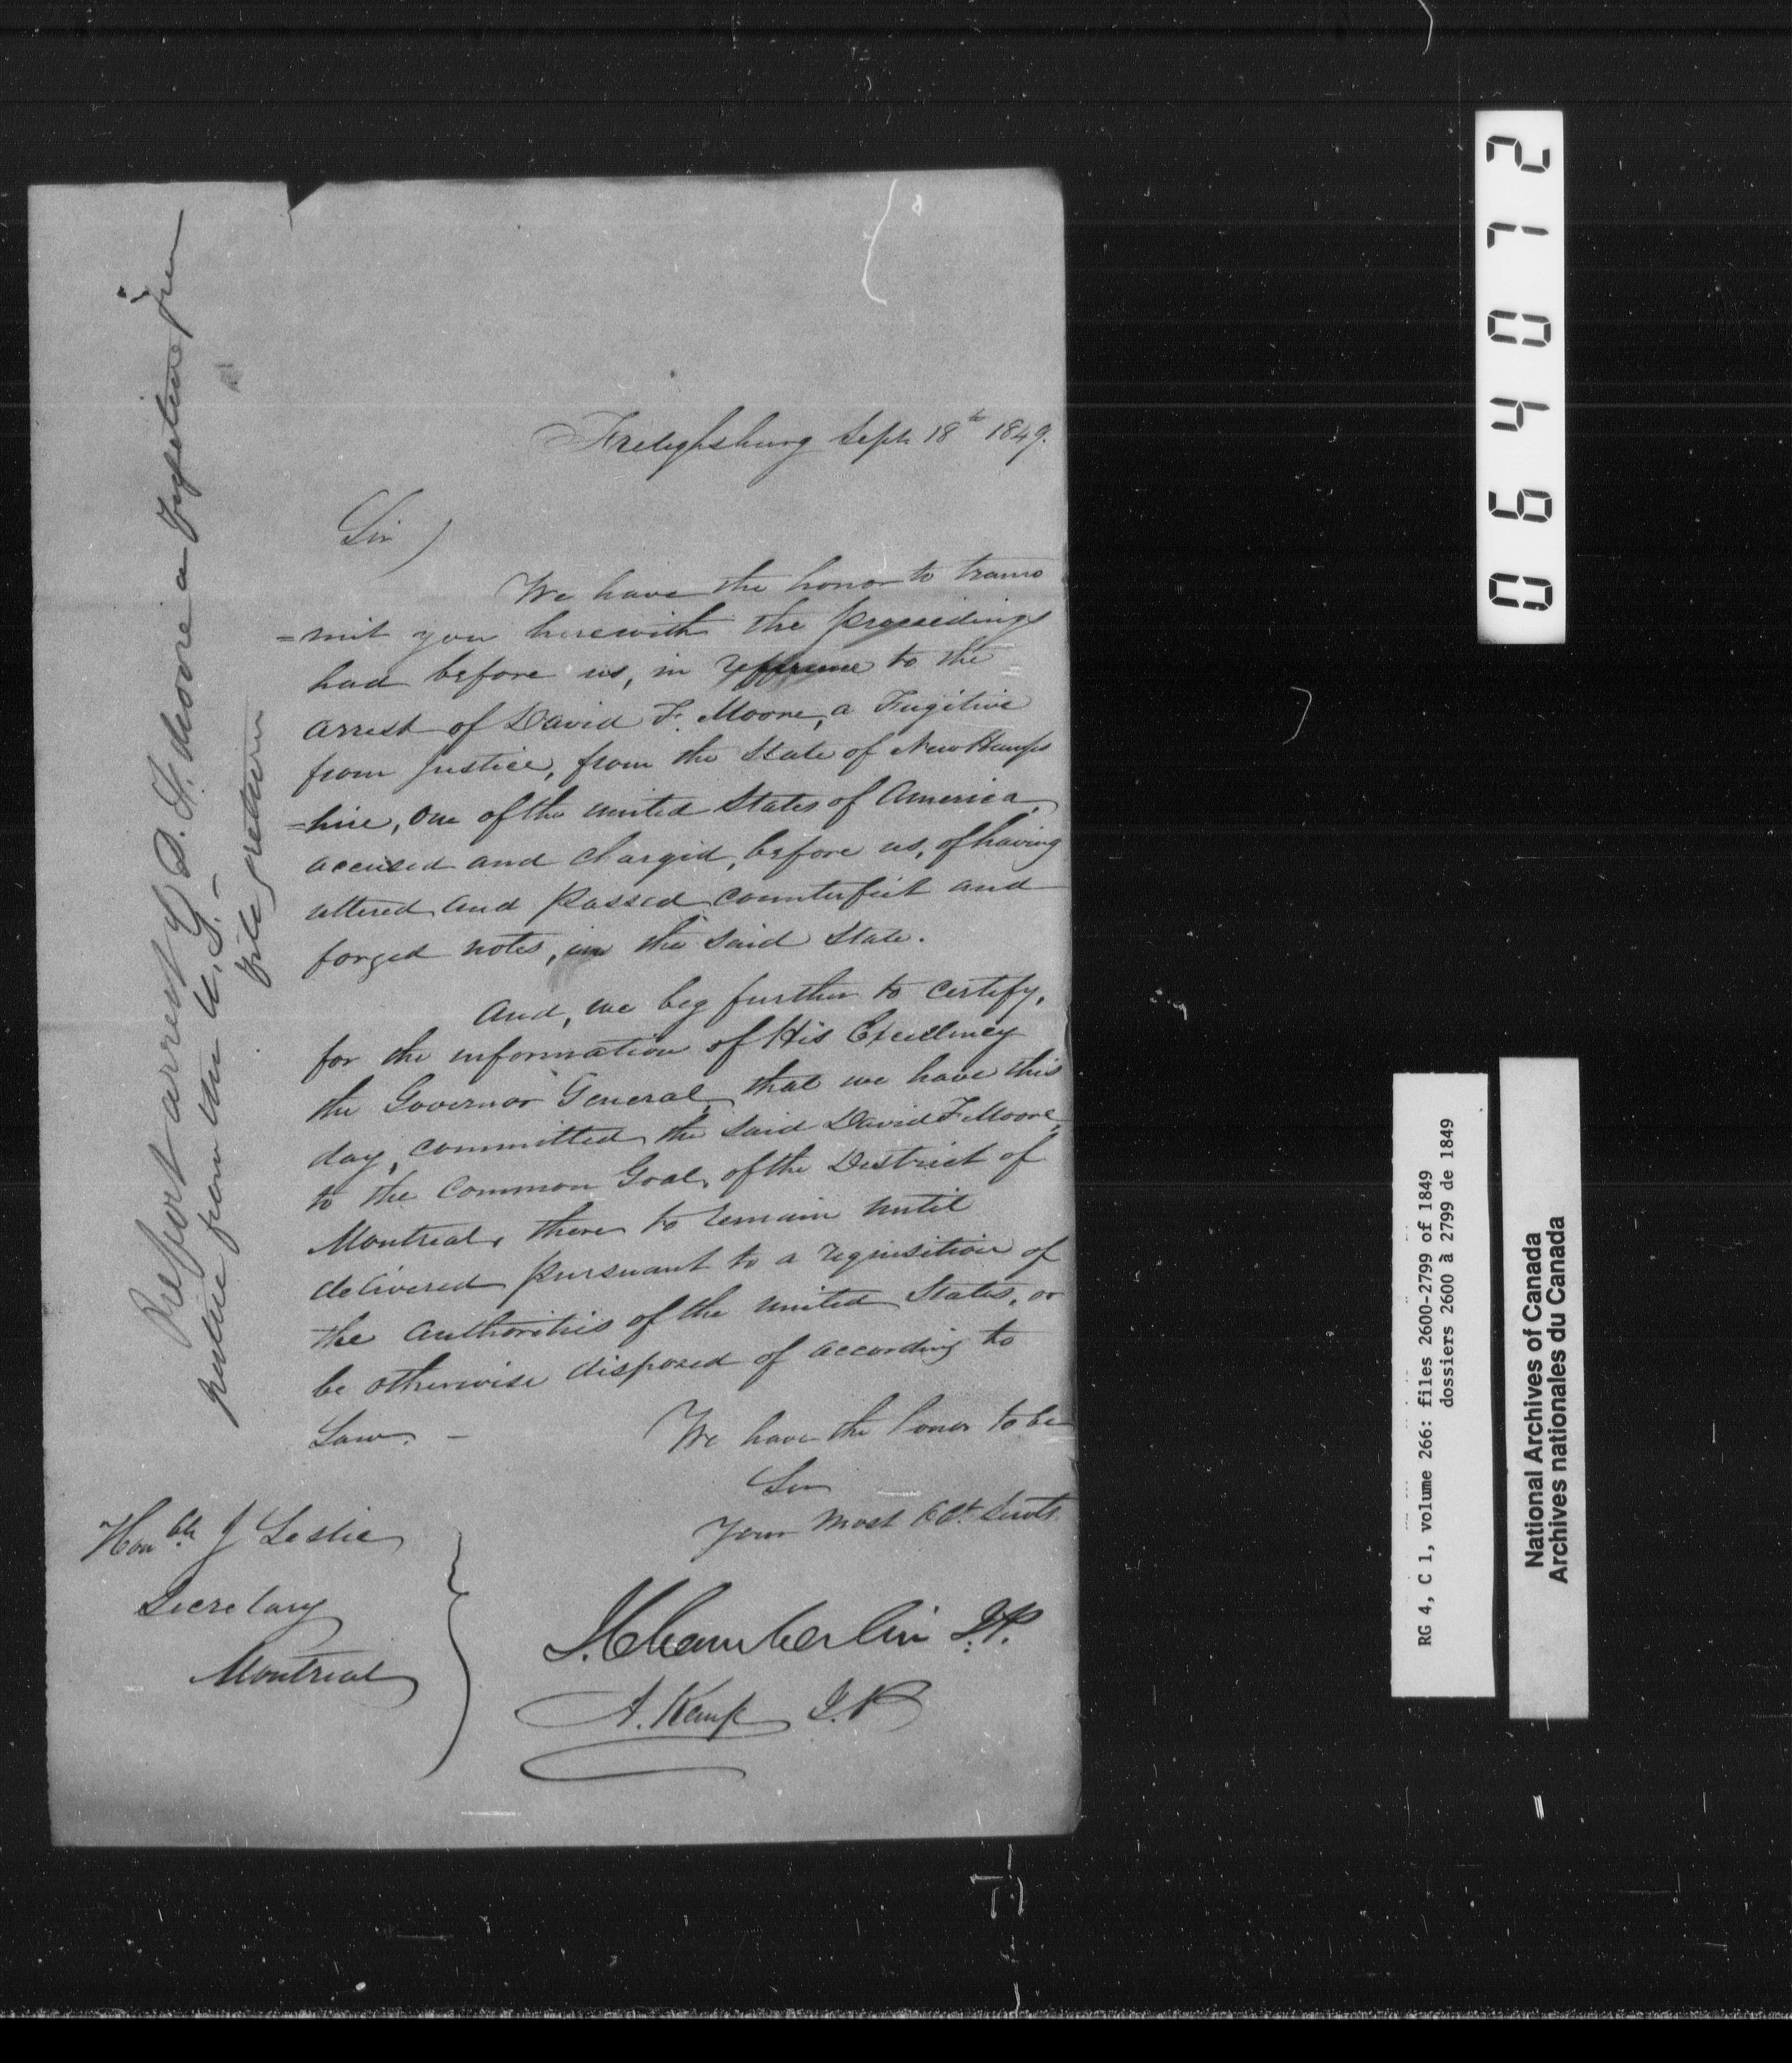 Frelighsburg Sept 18th 1849.
Sir)
We have the honor to trans
=mit you herewith the proceedings
had before us, in refference to the
arrest of David F. Moore, a Fugitive
from justice, from the State of New Hamps
=hire, one of the united States of America,
accused and charged, before us, of having
uttered and passed counterfeit and
forged notes, in the said State.
And, we beg further to certify,
for the information of His Excellency
the Governor General, that we have this
day, committed the said David F Moore,
to the Common Goal, of the District of
Montreal, there to remain until
delivered pursuant to a requisition of
the authorities of the united States, or
be otherwise disposed of according to
Law. -
We have the honor to be
Sir
Your most Obt Servts
Honble J Leslie
Secretary
Montreal
J. Chamberlin J.P.
A. Kemp J.P
Report arrest of D. F. Moore a fugitive from
justice from the U.S. -
file return
064072
RG 4, C 1, volume 266: files 2600-2799 of 1849
dossiers 2600 à 2799 de 1849
National Archives of Canada
Archives nationales du Canada